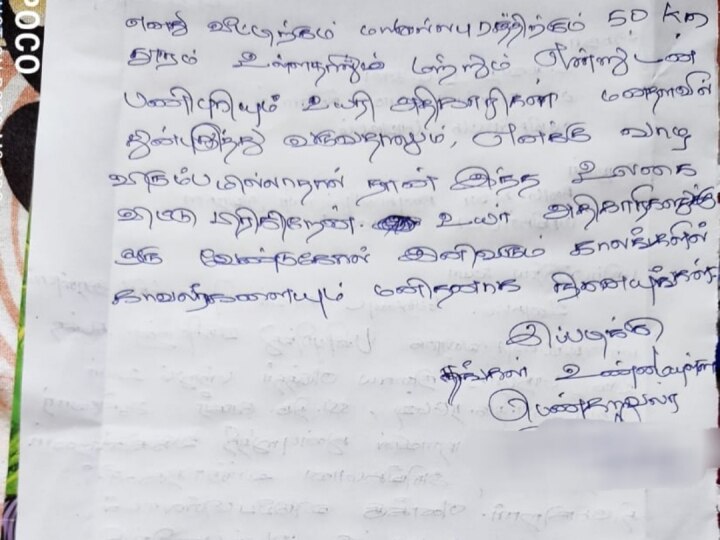 POCO
எனது வீட்டிற்கும் மாமல்லபுரத்திற்கும் 50 km
தூரம் உள்ளதாலும் மற்றும் என்னுடன்
பணிபுரியும் உயர் அதிகாரிகள் மனதளவில்
துன்புறுத்தி வருவதாலும், எனக்கு வாழ
விருப்பமில்லாதால் நான் இந்த உலகை
விட்டு பிரிகிறேன். உயர் அதிகாரிகளுக்கு
ஒரு வேண்டுகோள் இனிவரும் காலங்களில்
காவலர்களையும் மனிதனாக நினையுங்கள்.
இப்படிக்கு
தங்கள் உண்மையுள்ள
பெண்காவலர்